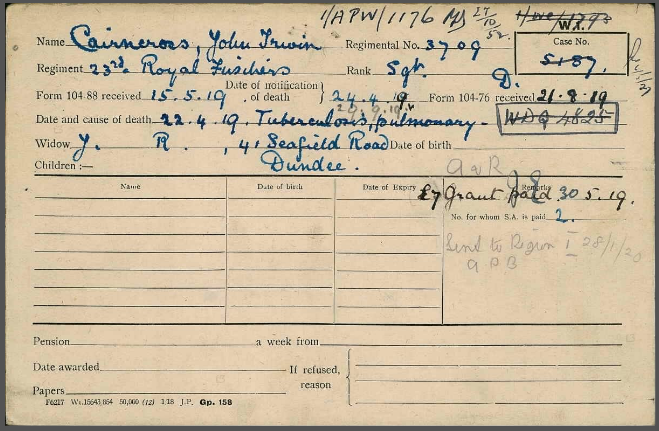 1/APW/1176 MS 27/10/52. W.R.1.
Name Cairncross, John Irwin Regimental No. 3709 Case No.
Regiment 23rd Royal Fusiliers Rank Sgt. D. 5187.
Form 104-88 received 15.5.19 Date of notification of death } 24.4.19 Form 104-76 received 21.8.19
Date and cause of death 22.4.19. Tuberculosis, pulmonary. WDQ 4825
Widow J. R. , 41 Seafield Road Date of birth
Children :— Dundee.
Name Date of birth Date of Expiry Remarks
£7 Grant paid 30.5.19.
No. for whom S.A. is paid 2.
Send to Region I 28/1/20
Pension a week from
Date awarded If refused,
Papers reason
F6217 Wt.15643/864 50,000 (12) 1/18 J.P. Gp. 158